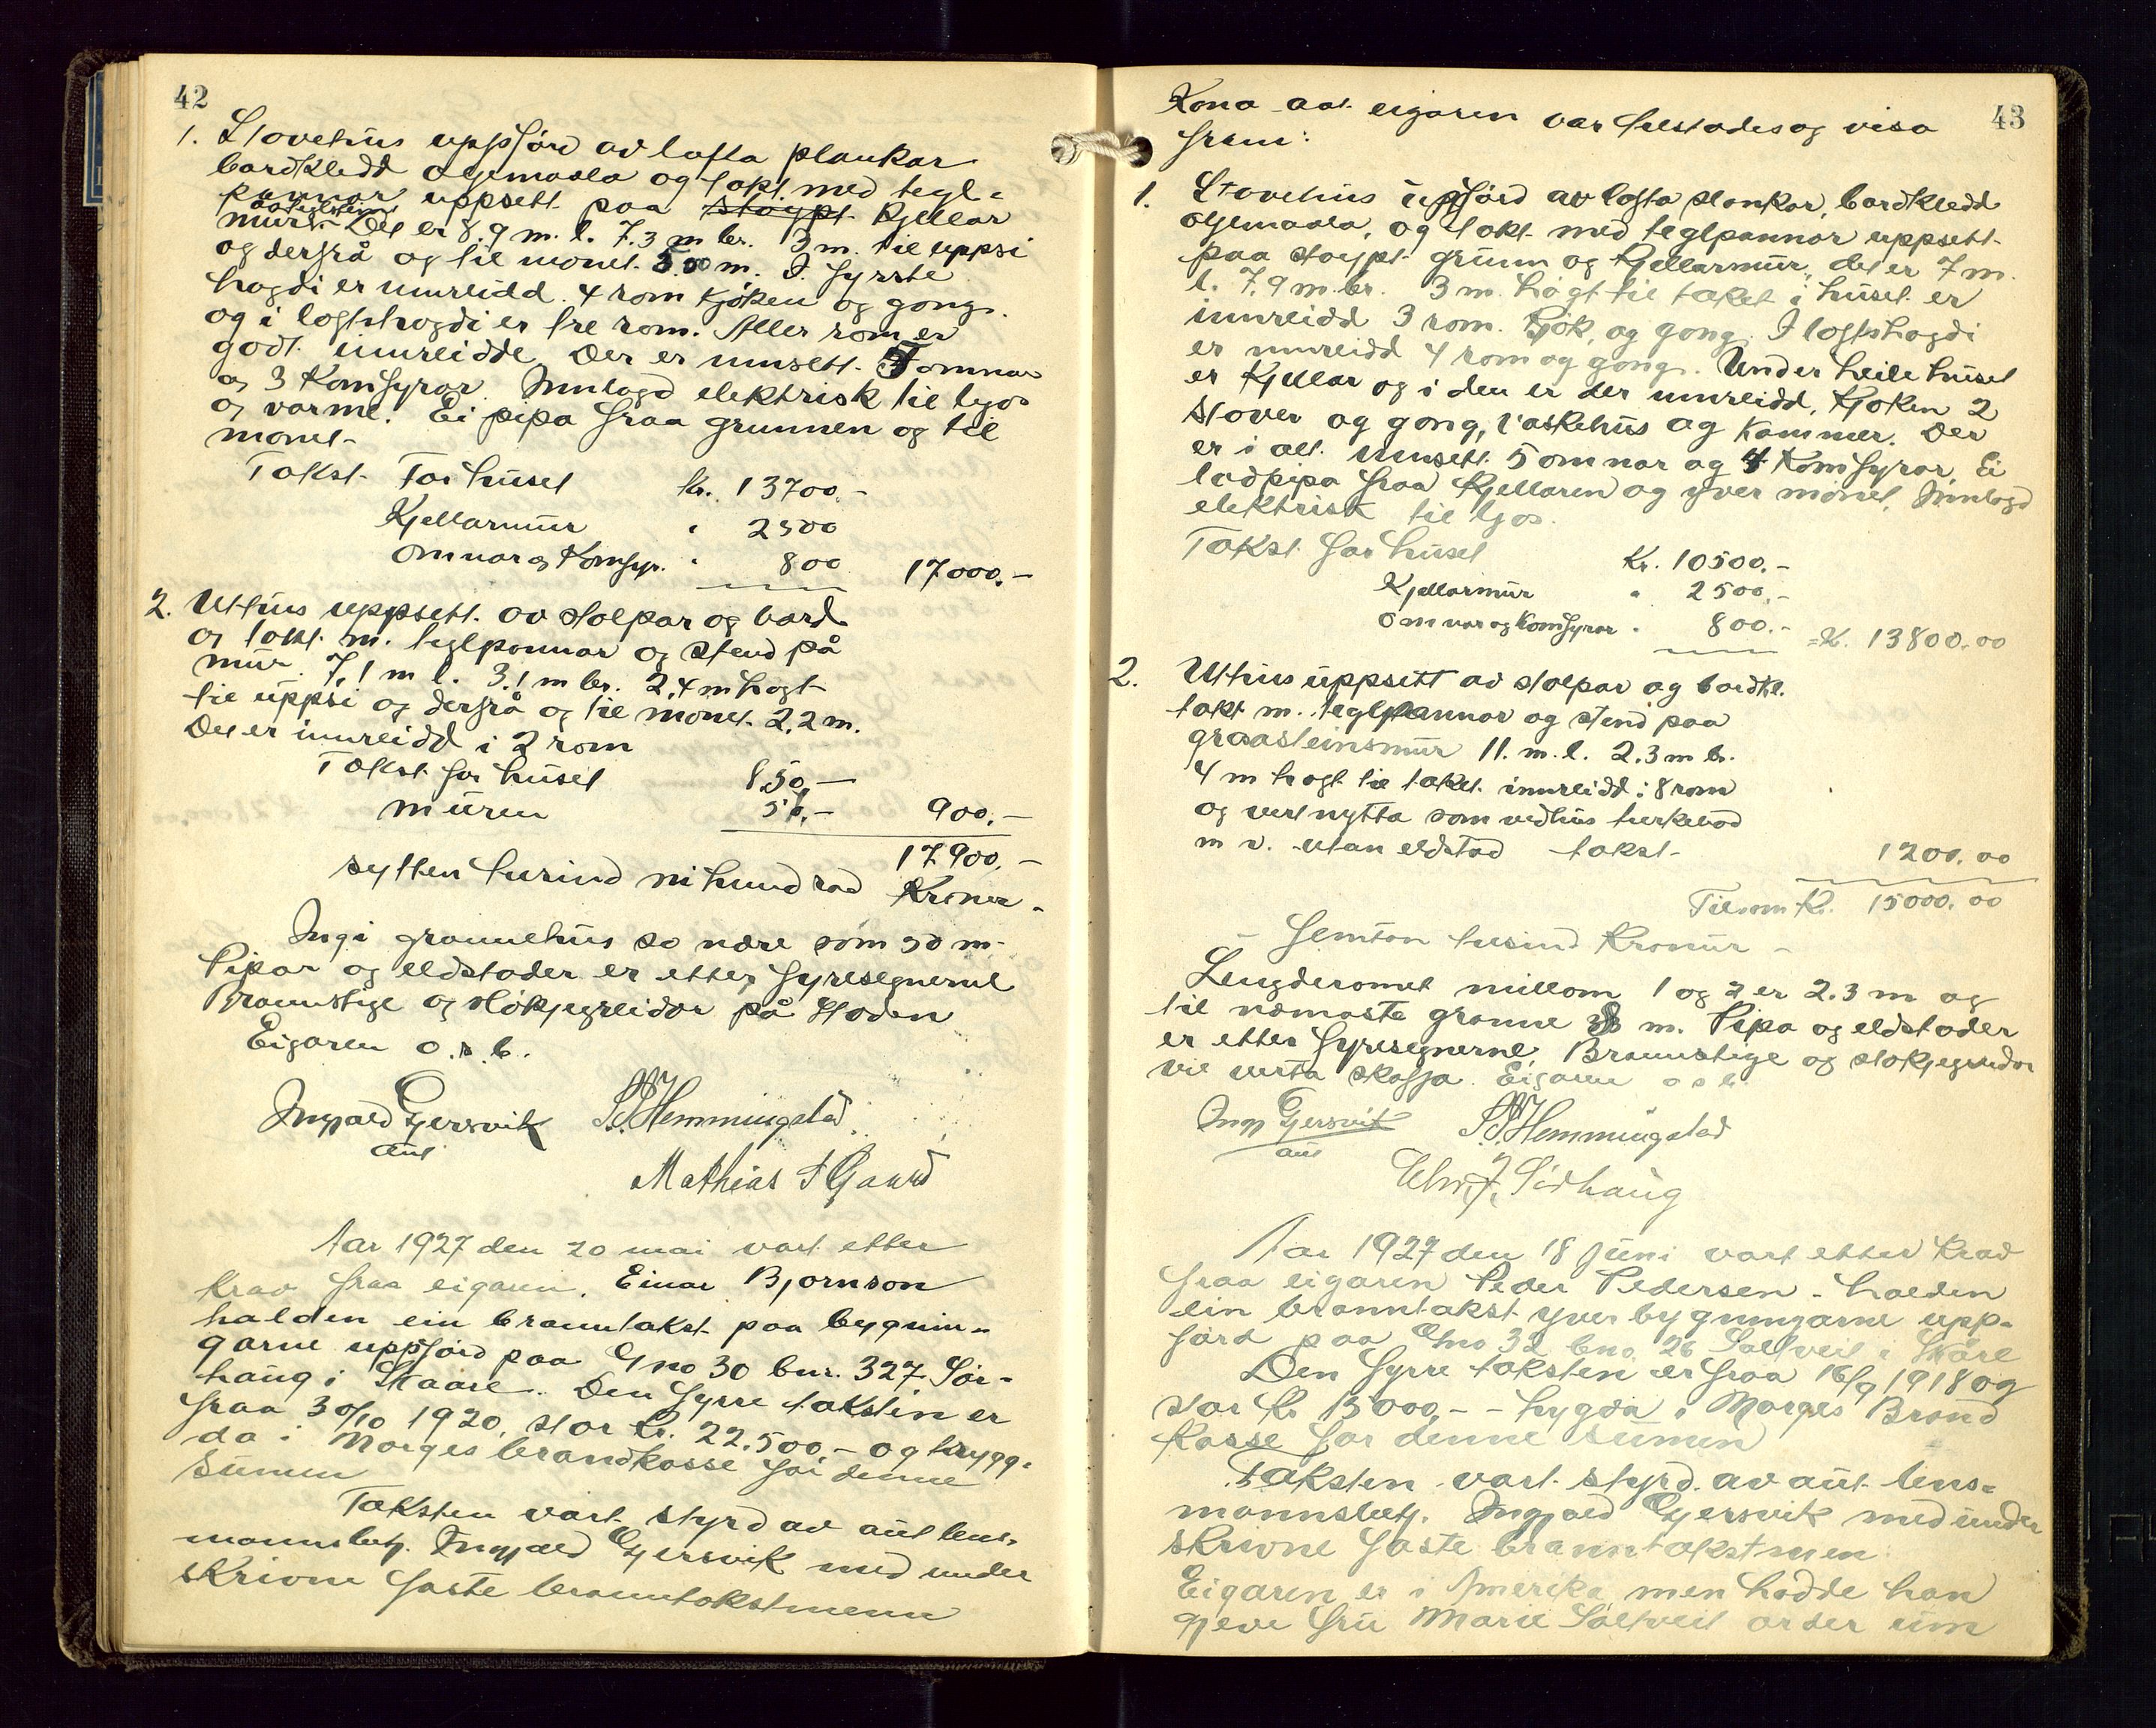 42
1. Stovehus uppförd av lafta plankar
bordkledd oljemaala og takt med tegl-
pannar uppsett paa stöypt kjellar
gråstein
mur. Det er 8.9 m. l. 7.3 m br. 3 m. til uppsi
og derfrå og til mönet 5.00 m. I fyrste
högdi er innreidd. 4 rom kjöken og gong.
og i loftshogdi er tre rom. Aller rom er
godt innreidde. Der er innsett. 5 omnar
og 3 komfyrar. Innlagd elektrisk til ljos
og varme. Ei pipa fraa grunnen og til
mönet-
Takst. For huset kr. 13700.-
Kjellarmur " 2500
Omnar og Komfyr. " 800 17000.-
2. Uthus uppsett av stolpar og bord
og takt m. teglpannar og stend på
mur. 7.1 m l. 3.1 m br. 2,4 m högt
til uppsi og derfrå og til mönet 2,2 m.
Det er innreidd i 2 rom
Takst for huset 850,-
muren 50.- 900.-
17900.-
sytten tusind nihundrad Kroner.
Ingi grannehus so nære som 30 m-
Pipar og eldstader er etter fyresegnerne
Brannstige og slökjegreidor på Staden
Eigaren o.s.b.
Ingvald Gjersvik S. J. Hemmingstad
aut
Mathias S Gaard
Aar 1927 den 20 mai vart etter
krav fraa eigaren. Einar Bjornson
halden ein branntakst paa bygnin-
garne uppförd paa Gno 30 bnr. 327 Sör-
haug i Skaare. Den fyrre taksten er
fraa 30/10 1920, stor kr. 22.500,- og trygg-
da i Norges brandkasse for denne
Sumen
Taksten vart styrd av aut lens-
mannsbetj. Ingvald Gjersvik med under
skrivne faste branntakstmenn
43
Kona aat eigaren var tilstades og visa
fram:
1. Stovehus uppförd av lafta plankar, bordkledd
oljemaala, og takt med teglpannar uppsett
paa stöypt grunn og kjellarmur, det er 7 m.
l. 7.9 m. br. 3 m. högt til taket i huset er
innreidd 3 rom. kjök, og gong. I loftshögdi
er innreidd 4 rom og gong. Under heile huset
er kjellar og i den er der innreidd, kjöken 2
stover og gong, vaskehus og kammer. Der
er i alt innsett 5 omnar og 4 komfyrar, Ei
ladpipa fraa kjellaren og yver mönet, Innlagd
elektrisk til ljos.
Takst for huset Kr. 10500.-
Kjellarmur " 2500.-
Omnar og komfyrar " 800.- =K. 13800.00
2. Uthus uppsett av stolpar og bordkl.
takt m. teglpannar og stend paa
graasteinsmur 11. m. l. 2.3 m br.
4 m högt til taket innreidd i 8 rom
og vert nytta som vedhus turkebod
m v. utan eldstad takst- 1200.00
Tilsam Kr. 15000.00
- Femton tusind Kronur -
Lengderomet millom 1 og 2 er 2.3 m og
til næmaste granne m. Pipa og eldstader
er etter fyresegnerne, Brannstige og slökjegreidor
vil verta skaffa. Eigaren o s b.
Ingv Gjersvik S. J. Hemmingstad
aut
Elw. J. Sörhaug
Aar 1927 den 18 Juni vart etter krav
fraa eigaren Peder Pedersen - halden
ein branntakst yver bygningarne upp-
förd paa Gno 32 bno 26 Saltveit i Skåre
Den fyrre taksten er fraa 16/9 1918 og
stor kr 15000.- - trygda i Norges Brand
kasse for denne sumen
Taksten vart styrd av aut. lens-
mannsbetj. Ingvald Gjersvik med under
skrivne faste branntakstmenn
Eigaren er i Amerika men hadde han
gjeve fru Marie Saltveit order um